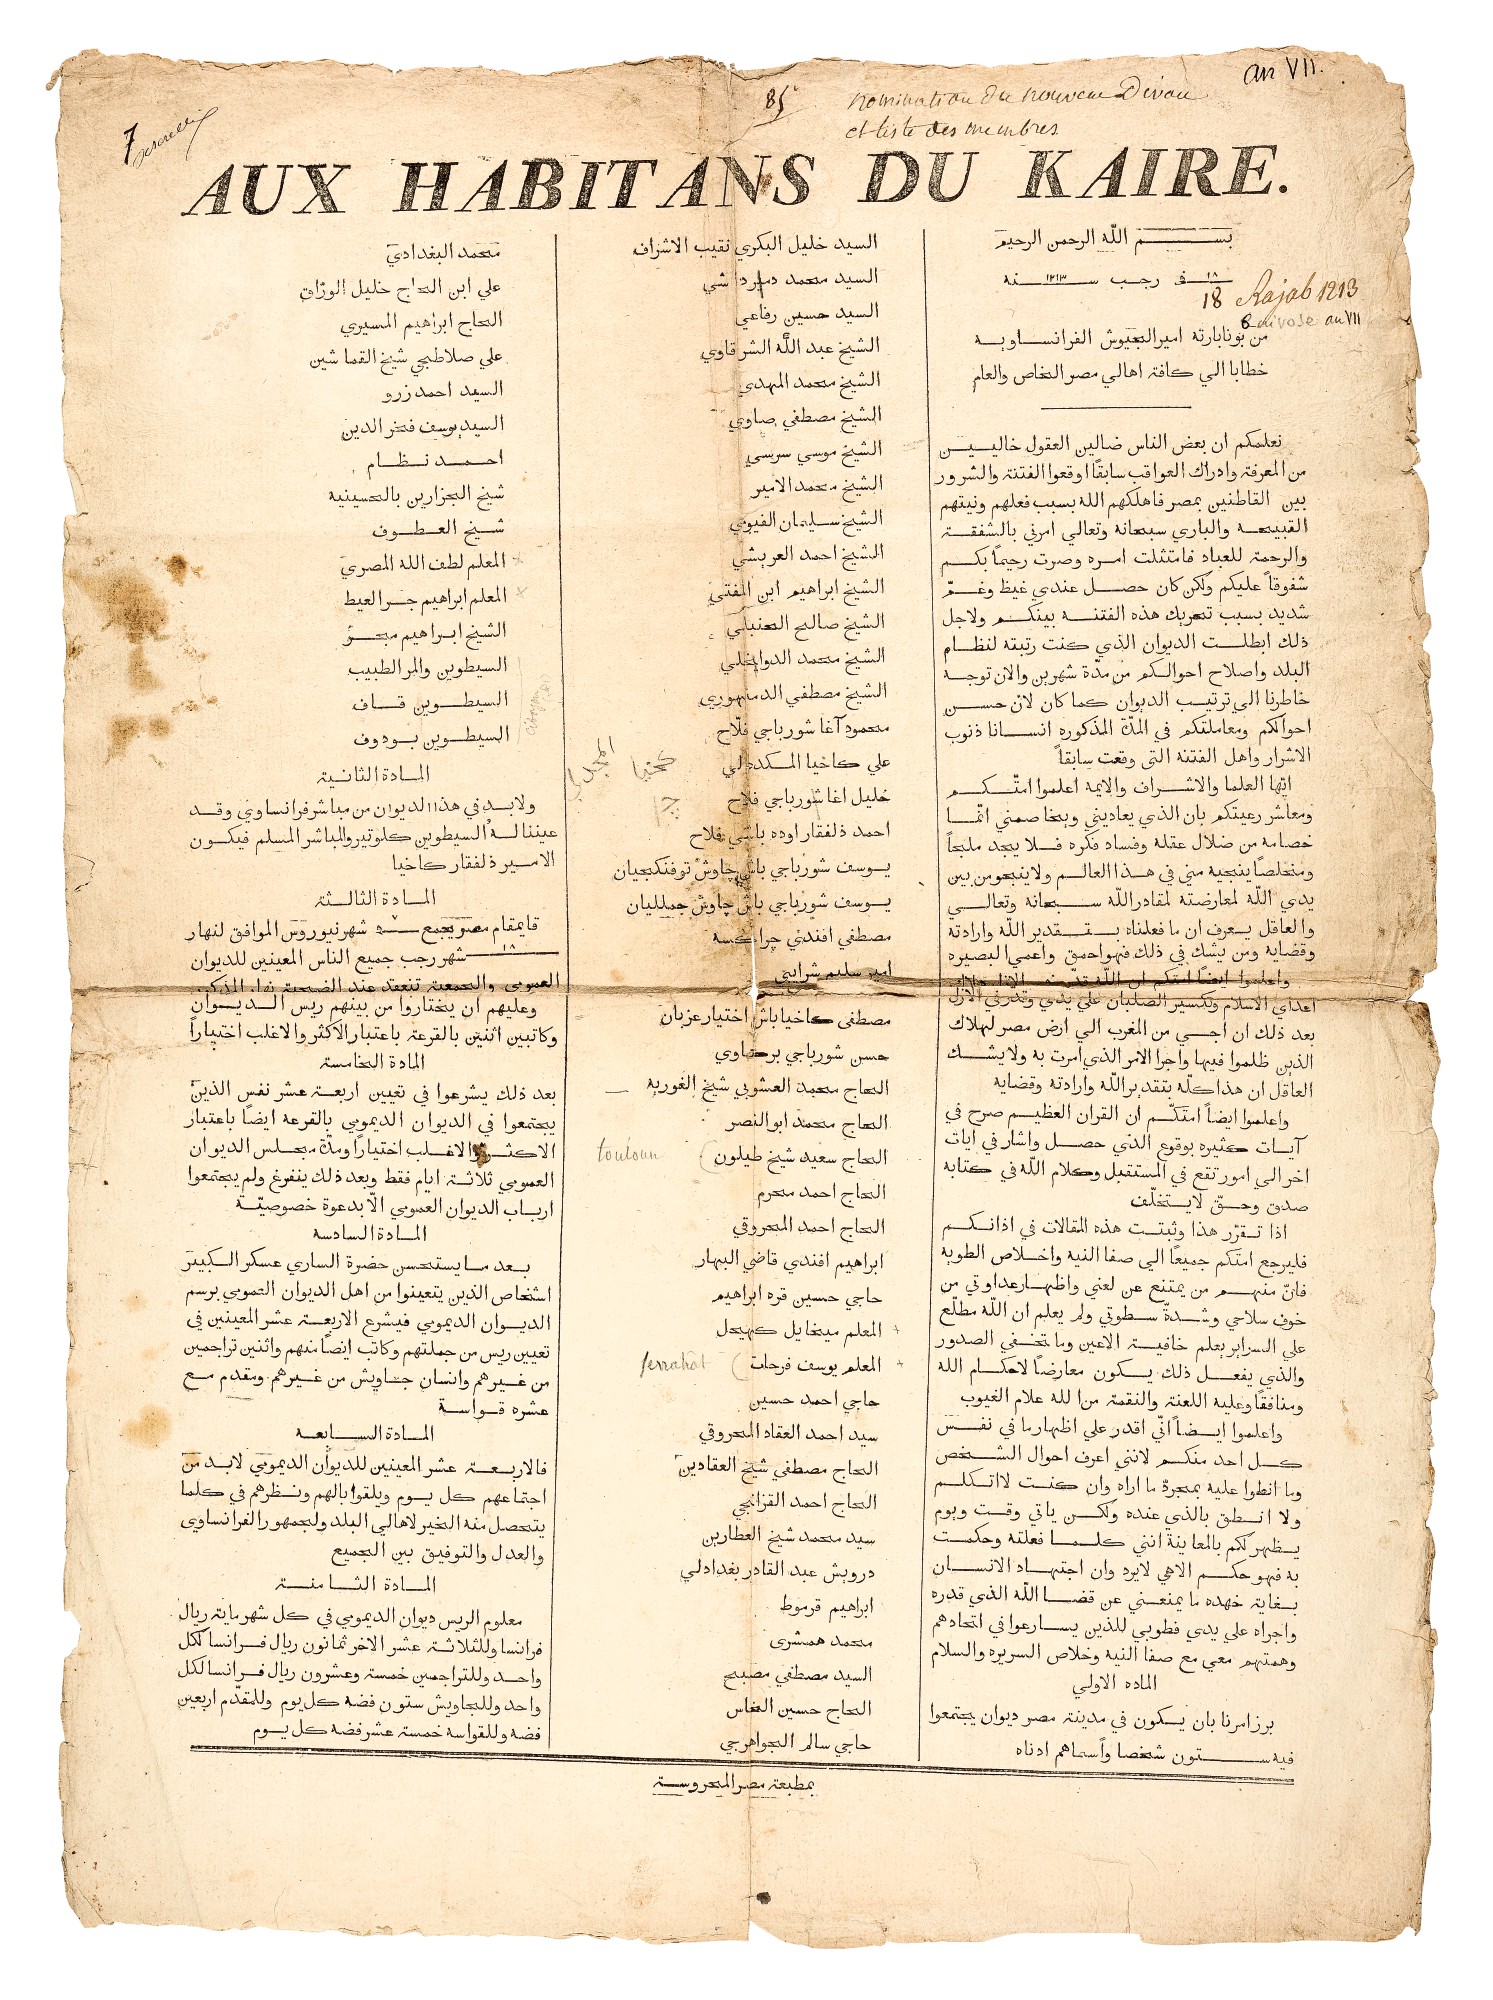 an VII.
85
nomination du nouveau Divan
et liste des membres
7
AUX HABITANS DU KAIRE.
بســـــم اللّه الرحمن الرحيم
١٨ فى رجب ســـنة ١٢١٣
18 Rajab 1213
an VII
من بونابارته امير الجيوش الفرانساويه
خطابا الي كافة اهالي مصر الخاص والعام
نعلمكم ان بعض الناس ضالين العقول خاليين
من المعرفة وادراك العواقب سابقًا اوقعوا الفتنة والشرور
بين القاطنين بمصر فاهلكهم الله بسبب فعلهم ونيتهم
القبيحه والباري سبحانه وتعالي امرني بالشفقة
والرحمة للعباد فامتثلت امره وصرت رحيمًا بكم
شفوقاً عليكم ولكن كان حصل عندي غيظ وغمّ
شديد بسبب تحريك هذه الفتنه بينكم ولاجل
ذلك ابطلت الديوان الذي كنت رتبته لنظام
البلد واصلاح احوالكم من مدّة شهرين والان توجه
خاطرنا الي ترتيب الديوان كما كان لان حسن
احوالكم ومعاملتكم في المدّة المذكوره انسانا ذنوب
الاشرار واهل الفتنه التي وقعت سابقاً
ايّها العلما والاشراف والايمه اعلموا امتّكم
ومعاشر رعيتكم بان الذي يعاديني ويخاصمني انّما
خصامه من ضلال عقله وفساد فكره فلا يجد ملجأ
ومخلصاً ينجيه مني في هذا العالم ولا ينجو من بين
يدي اللّه لمعارضته لمقادر اللّه سبحانه وتعالي
والعاقل يعرف ان ما فعلناه بتقدير اللّه وارادته
وقضايه ومن يشك في ذلك فهو احمق واعمي البصيره
واعلموا ايضًا امتكم ان اللّه قدّر في الازل هلاك
اعداي الاسلام وتكسير الصلبان علي يدي وقدر في الازل
بعد ذلك ان اجي من المغرب الي ارض مصر لهلاك
الذين ظلموا فيها واجرا الامر الذي امرت به ولا يشك
العاقل ان هذا كلّه بتقدير اللّه وارادته وقضايه
واعلموا ايضاً امتكّم ان القران العظيم صرح في
آيات كثيره بوقوع الذي حصل واشار في ايات
اخر الي امور تقع في المستقبل وكلام اللّه في كتابه
صدق وحقّ لا يتخلّف
اذا تقرّر هذا وثبتت هذه المقالات في اذانكم
فليرجع امتكم جميعًا الي صفا النيه واخلاص الطويه
فانّ منهم من يمتنع عن لعني واظهار عداوتي من
خوف سلاحي وشدّة سطوتي ولم يعلم ان اللّه مطلّع
علي السراير يعلم خافية الاعين وما تخفي الصدور
والذي يفعل ذلك يكون معارضاً لاحكام الله
ومنافقًا وعليه اللعنة والنقمة من الله علام الغيوب
واعلموا ايضاً انّي اقدر علي اظهار ما في نفس
كل احد منكم لانني اعرف احوال الشخص
وما انطوا عليه بمجردّ ما اراه وان كنت لا اتكلم
ولا انطق بالذي عنده ولكن ياتي وقت ويوم
يظهر لكم بالمعاينة انني كلما فعلته وحكمت
به فهو حكم الاهي لا يرد وان اجتهاد الانسان
بغاية جهده ما يمنعني عن قضا اللّه الذي قدره
واجراه علي يدي فطوبي للذين يسارعوا في اتحادهم
وهمتهم معي مع صفا النيه وخلاص السريره والسلام
الماده الاولي
برز امرنا بان يكون في مدينة مصر ديوان يجتمعوا
فيه ستون شخصا واسماهم ادناه
السيد خليل البكري نقيب الاشراف
السيد محمد دميرداشي
السيد حسين رفاعي
الشيخ عبد اللّه الشرقاوي
الشيخ محمد المهدي
الشيخ مصطفي صاوي
الشيخ موسي سرسي
الشيخ محمد الامير
الشيخ سليمان الفيومي
الشيخ احمد العريشي
الشيخ ابراهيم ابن المفتي
الشيخ صالح الحنبلي
الشيخ محمد الدواخلي
الشيخ مصطفي الدمنهوري
محمود آغا شورباجي فلّاح
علي كاخيا المكدهلي
خليل اغا شورباجي فلاح
احمد ذلفقار اوده باشي فلاح
يوسف شورباجي باش چاوش توفنكجيان
يوسف شورباجي باش چاوش جمليان
مصطفي افندي چراكسة
امير سليم شرايبي
مصطفي كاخيا باش اختيار عزبان
حسن شورباجي برحتاوي
الحاج محمد العشوبي شيخ الغوريه
الحاج محمد ابو النصر
الحاج سعيد شيخ طيلون
touloun
الحاج احمد محرم
الحاج احمد المحروقي
ابراهيم افندي قاضي البهار
حاجي حسين قره ابراهيم
المعلم ميخايل كهيحل
المعلم يوسف فرحات
ferrahat
حاجي احمد حسين
سيد احمد العقاد المحروقي
الحاج مصطفي شيخ العقادين
الحاج احمد القزانجي
سيد محمد شيخ العطارين
درويش عبد القادر بغدادلي
ابراهيم قرموط
محمد همشرى
السيد مصطفي مصبح
الحاج حسين النحاس
حاجي سالم الجواهرجي
محمد البغدادي
علي ابن الحاج خليل الوزّاق
الحاج ابراهيم المسيري
علي صلاطجي شيخ القماشين
السيد احمد زرو
السيد يوسف فخر الدين
احمد نظام
شيخ الجزارين بالحسينيه
شيخ العطوف
المعلم لطف الله المصري
المعلم ابراهيم جر العيط
الشيخ ابراهيم مجرّ
السيطوين والمر الطبيب
السيطوين قاف
السيطوين بودوف
المادة الثانية
ولابد في هذا الديوان من مباشر فرانساوي وقد
عيننا له السيطوين كلوتير والمباشر المسلم فيكون
الامير ذلفقار كاخيا
المادة الثالثة
قايمقام مصر يجمع ٧ شهر نيوروس الموافق لنهار
١٨ شهر رجب جميع الناس المعينين للديوان
العمومي والجمعية تنعقد عند الضحية نهار المذكور
وعليهم ان يختاروا من بينهم ريس الديوان
وكاتبين اثنين بالقرعة باعتبار الاكثر والاغلب اختياراً
المادة الخامسة
بعد ذلك يشرعوا في تعيين اربعة عشر نفس الذين
يجتمعوا في الديوان الديمومي بالقرعه ايضاً باعتبار
الاكثر والاغلب اختياراً ومدّة مجلس الديوان
العمومي ثلاثة ايام فقط وبعد ذلك ينفرغ ولم يجتمعوا
ارباب الديوان العمومي الاّ بدعوة خصوصيّة
المادة السادسه
بعد ما يستحسن حضرة الساري عسكر الكبير
اشخاص الذين يتعينوا من اهل الديوان العمومي برسم
الديوان الديمومي فيشرع الاربعة عشر المعينين في
تعيين ريس من جملتهم وكاتب ايضاً منهم واثنين تراجمين
من غيرهم وانسان جاويش من غيرهم ومقدم مع
عشره قواسة
المادة السابعه
فالاربعة عشر المعينين للديوان الديمومي لابد من
اجتماعهم كل يوم ويلقوا بالهم ونظرهم في كلما
يتحصل منه الخير لاهالي البلد ولجمهور الفرانساوي
والعدل والتوفيق بين الجميع
المادة الثامنة
معلوم الريس ديوان الديمومي في كل شهر ماية ريال
فرانسا وللثلاثة عشر الاخر ثمانون ريال فرانسا لكل
واحد وللتراجمين خمسة وعشرون ريال فرانسا لكل
واحد وللجاويش ستون فضه كل يوم وللمقدّم اربعين
فضه وللقواسه خمسة عشر فضه كل يوم
بمطبعة مصر المحروسة